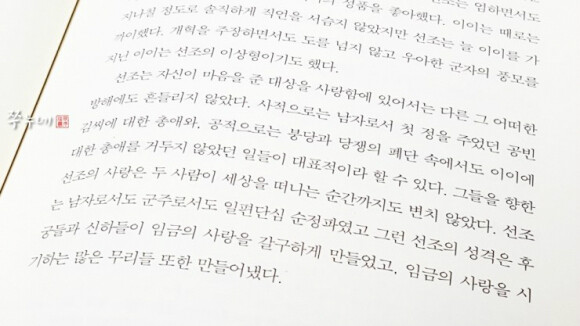 의 성품을 좋아했다. 이이는 때로는
지나칠 정도로 솔직하게 직언을 서슴지 않았지만 선조는 늘 이이를 가
까이했다. 개혁을 주장하면서도 도를 넘지 않고 우아한 군자의 풍모를
지닌 이이는 선조의 이상형이기도 했다.
선조는 자신이 마음을 준 대상을 사랑함에 있어서는 다른 그 어떠한
방해에도 흔들리지 않았다. 사적으로는 남자로서 첫 정을 주었던 공빈
김씨에 대한 총애와, 공적으로는 붕당과 당쟁의 폐단 속에서도 이이에
대한 총애를 거두지 않았던 일들이 대표적이라 할 수 있다. 그들을 향한
선조의 사랑은 두 사람이 세상을 떠나는 순간까지도 변치 않았다. 선조
는 남자로서도 군주로서도 일편단심 순정파였고 그런 선조의 성격은 후
궁들과 신하들이 임금의 사랑을 갈구하게 만들었고, 임금의 사랑을 시
기하는 많은 무리들 또한 만들어냈다.